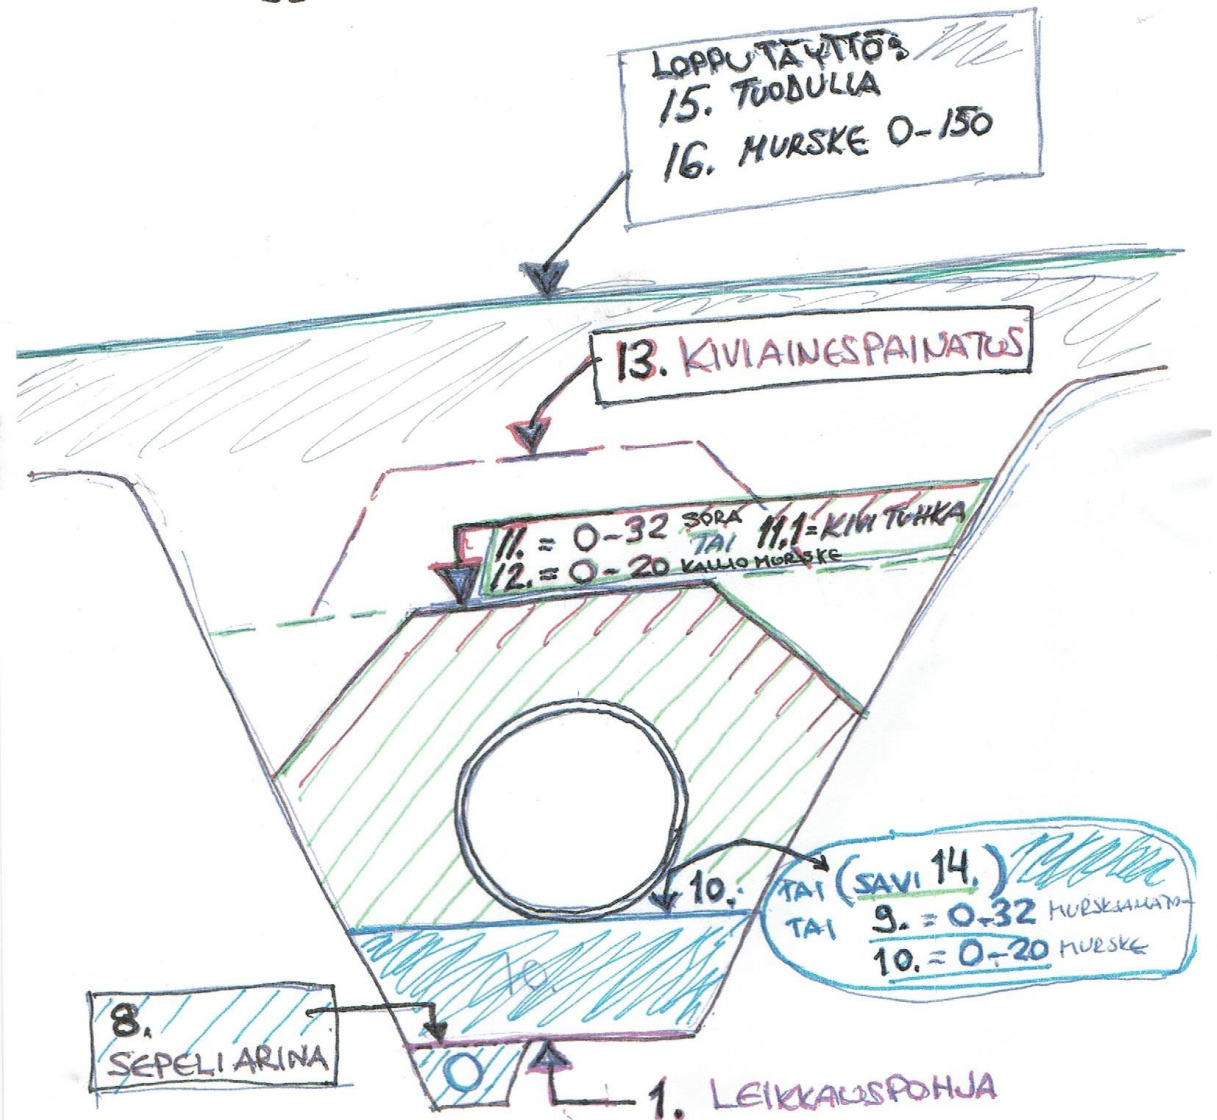 LOPPUTÄYTTÖ:
15. TUODULLA
16. MURSKE 0-150
13. KIVIAINESPAINATUS
11. = 0-32 SORA TAI 11.1= KIVITUHKA
12. = 0-20 KALLIO MURSKE
10.
TAI (SAVI 14.)
TAI 9. = 0-32
10. = 0-20 MURSKE
10.
8.
SEPELI ARINA
1. LEIKKAUSPOHJA